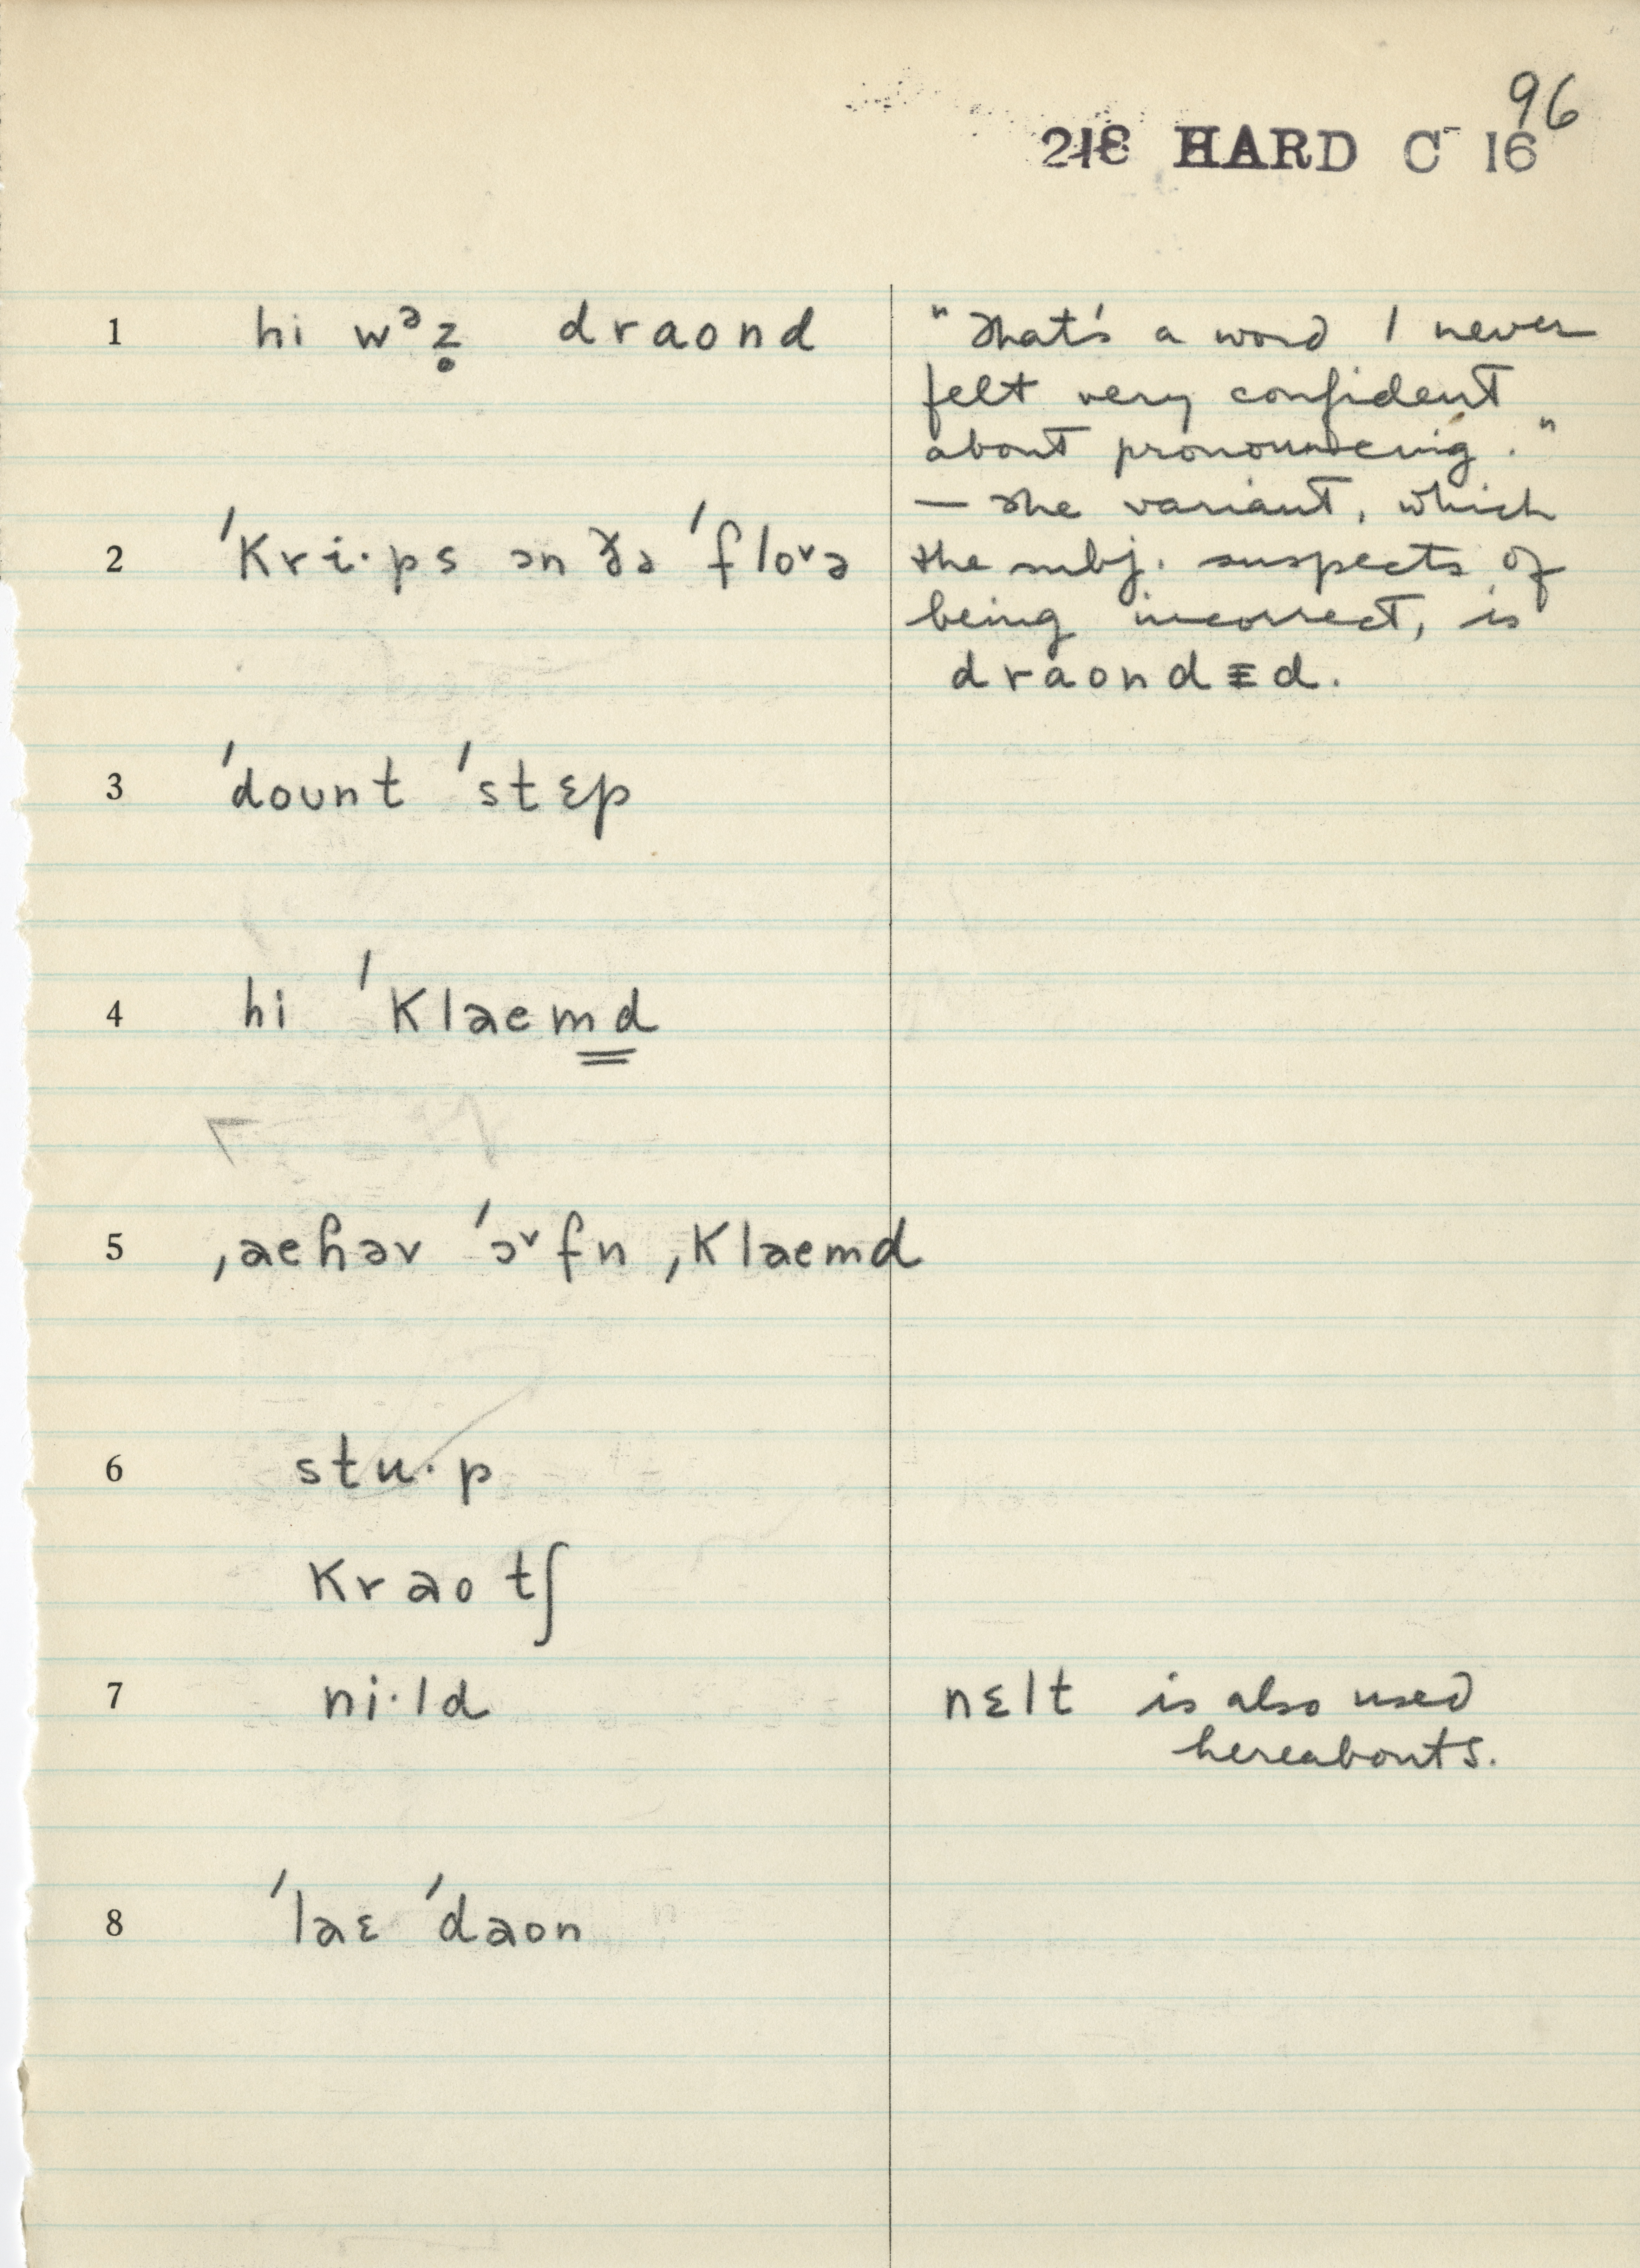 96
218 HARD C⁻ 16
1 hi wᵊz̥ draond
"That's a word I never
felt very confident
about pronouncing."
— The variant, which
2 ˈkri·ps ən ðə ˈfloᵛə
the subj. suspects of
being incorrect, is
draondɪd.
3 ˈdount ˈstɛp
4 hi ˈklaemd
5 ˌaehəv ˈɔᵛfn ˌklaemd
6 stu·p
kraotʃ
7 ni·ld
nɛlt is also used
hereabouts.
8 ˈlaɛ ˈdaon